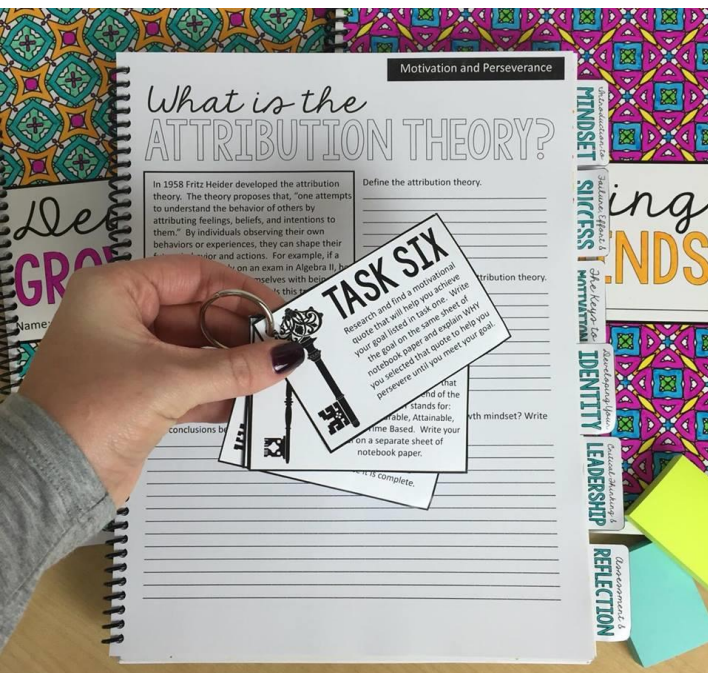 Motivation and Perseverance
What is the
ATTRIBUTION THEORY?
In 1958 Fritz Heider developed the attribution
theory. The theory proposes that, "one attempts
to understand the behavior of others by
attributing feelings, beliefs, and intentions to
them." By individuals observing their own
behaviors or experiences, they can shape their
and actions. For example, if a
on an exam in Algebra II,
Define the attribution theory.
theory.
TASK SIX
Research and find a motivational
quote that will help you achieve
your goal listed in task one. Write
the goal on the same sheet of
notebook paper and explain WHY
you selected that quote to help you
persevere until you meet your goal.
that
of the
stands for:
Attainable,
Based. Write your
on a separate sheet of
notebook paper.
it is complete.
mindset? Write
conclusions
Name:
Introduction to
MINDSET
Failure, Effort &
SUCCESS
The Keys to
Developing Your
IDENTITY
Critical Thinking &
LEADERSHIP
Assessment &
REFLECTION